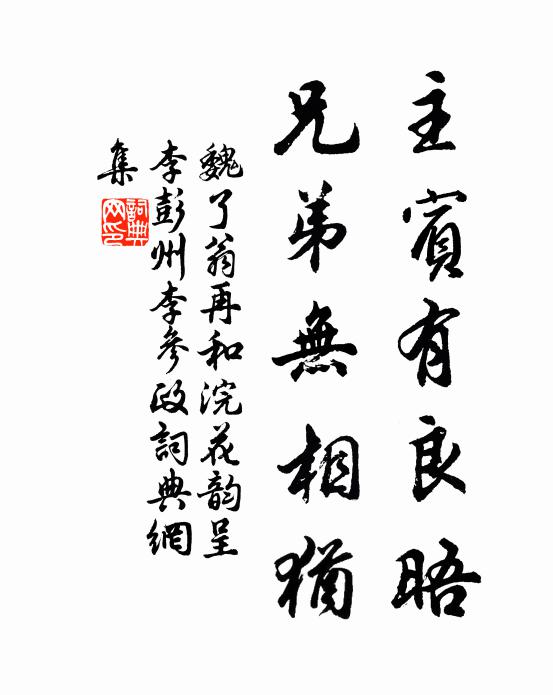 主賓有良晤
兄弟無相猶
魏了翁再和浣花韵呈
李彭州李參政詞典網
集
詞典網印